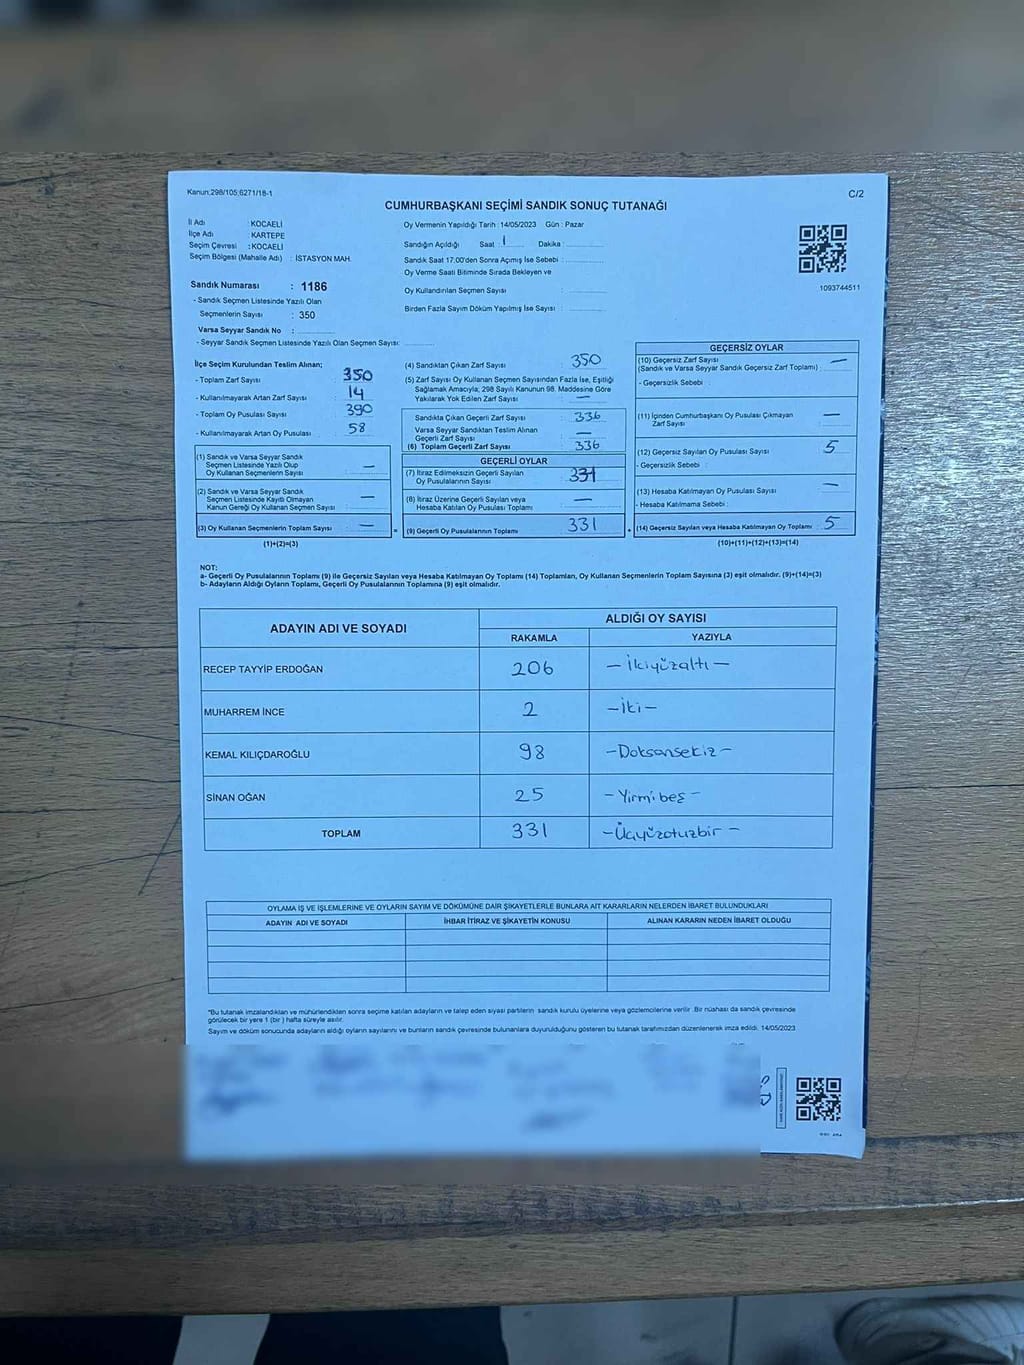 Kanun;298/105;6271/18-1
C/2
CUMHURBAŞKANI SEÇİMİ SANDIK SONUÇ TUTANAĞI
İl Adı : KOCAELİ
İlçe Adı : KARTEPE
Seçim Çevresi : KOCAELİ
Seçim Bölgesi (Mahalle Adı) : İSTASYON MAH.
Oy Vermenin Yapıldığı Tarih : 14/05/2023 Gün : Pazar
Sandığın Açıldığı Saat : 1 Dakika :
Sandık Saat 17.00'den Sonra Açımış İse Sebebi :
Oy Verme Saati Bitiminde Sırada Bekleyen ve
Oy Kullandırılan Seçmen Sayısı :
Birden Fazla Sayım Döküm Yapılmış İse Sayısı :
1093744511
Sandık Numarası : 1186
- Sandık Seçmen Listesinde Yazılı Olan
Seçmenlerin Sayısı : 350
Varsa Seyyar Sandık No :
- Seyyar Sandık Seçmen Listesinde Yazılı Olan Seçmen Sayısı:
İlçe Seçim Kurulundan Teslim Alınan;
- Toplam Zarf Sayısı : 350
- Kullanılmayarak Artan Zarf Sayısı : 14
- Toplam Oy Pusulası Sayısı : 390
- Kullanılmayarak Artan Oy Pusulası : 58
(1) Sandık ve Varsa Seyyar Sandık
Seçmen Listesinde Yazılı Olup
Oy Kullanan Seçmenlerin Sayısı : —
(2) Sandık ve Varsa Seyyar Sandık
Seçmen Listesinde Kayıtlı Olmayan
Kanun Gereği Oy Kullanan Seçmen Sayısı : —
(3) Oy Kullanan Seçmenlerin Toplam Sayısı : —
(1)+(2)=(3)
(4) Sandıktan Çıkan Zarf Sayısı : 350
(5) Zarf Sayısı Oy Kullanan Seçmen Sayısından Fazla İse, Eşitliği
Sağlamak Amacıyla; 298 Sayılı Kanunun 98. Maddesine Göre
Yakılarak Yok Edilen Zarf Sayısı : —
Sandıkta Çıkan Geçerli Zarf Sayısı : 336
Varsa Seyyar Sandıktan Teslim Alınan
Geçerli Zarf Sayısı : —
(6) Toplam Geçerli Zarf Sayısı : 336
GEÇERLİ OYLAR
(7) İtiraz Edilmeksizin Geçerli Sayılan
Oy Pusulalarının Sayısı : 331
(8) İtiraz Üzerine Geçerli Sayılan veya
Hesaba Katılan Oy Pusulası Toplamı : —
= (9) Geçerli Oy Pusulalarının Toplamı : 331
GEÇERSİZ OYLAR
(10) Geçersiz Zarf Sayısı : —
(Sandık ve Varsa Seyyar Sandık Geçersiz Zarf Toplamı)
- Geçersizlik Sebebi :
(11) İçinden Cumhurbaşkanı Oy Pusulası Çıkmayan
Zarf Sayısı : —
(12) Geçersiz Sayılan Oy Pusulası Sayısı : 5
- Geçersizlik Sebebi :
(13) Hesaba Katılmayan Oy Pusulası Sayısı : —
- Hesaba Katılmama Sebebi :
+ (14) Geçersiz Sayılan veya Hesaba Katılmayan Oy Toplamı : 5
(10)+(11)+(12)+(13)=(14)
NOT:
a- Geçerli Oy Pusulalarının Toplamı (9) ile Geçersiz Sayılan veya Hesaba Katılmayan Oy Toplamı (14) Toplamları, Oy Kullanan Seçmenlerin Toplam Sayısına (3) eşit olmalıdır. (9)+(14)=(3)
b- Adayların Aldığı Oyların Toplamı, Geçerli Oy Pusulalarının Toplamına (9) eşit olmalıdır.
ADAYIN ADI VE SOYADI
ALDIĞI OY SAYISI
RAKAMLA YAZIYLA
RECEP TAYYİP ERDOĞAN 206 — İkiyüzaltı —
MUHARREM İNCE 2 — İki —
KEMAL KILIÇDAROĞLU 98 — Doksansekiz —
SİNAN OĞAN 25 — Yirmibeş —
TOPLAM 331 — Üçyüzotuzbir —
OYLAMA İŞ VE İŞLEMLERİNE VE OYLARIN SAYIM VE DÖKÜMÜNE DAİR ŞİKAYETLERLE BUNLARA AİT KARARLARIN NELERDEN İBARET BULUNDUKLARI
ADAYIN ADI VE SOYADI İHBAR İTİRAZ VE ŞİKAYETİN KONUSU ALINAN KARARIN NEDEN İBARET OLDUĞU
"Bu tutanak imzalandıktan ve mühürlendikten sonra seçime katılan adayların ve talep eden siyasi partilerin sandık kurulu üyelerine veya gözlemcilerine verilir .Bir nüshası da sandık çevresinde
görülecek bir yere 1 (bir ) hafta süreyle asılır.
Sayım ve döküm sonucunda adayların aldığı oyların sayılarını ve bunların sandık çevresinde bulunanlara duyurulduğunu gösteren bu tutanak tarafımızdan düzenlenerek imza edildi. 14/05/2023